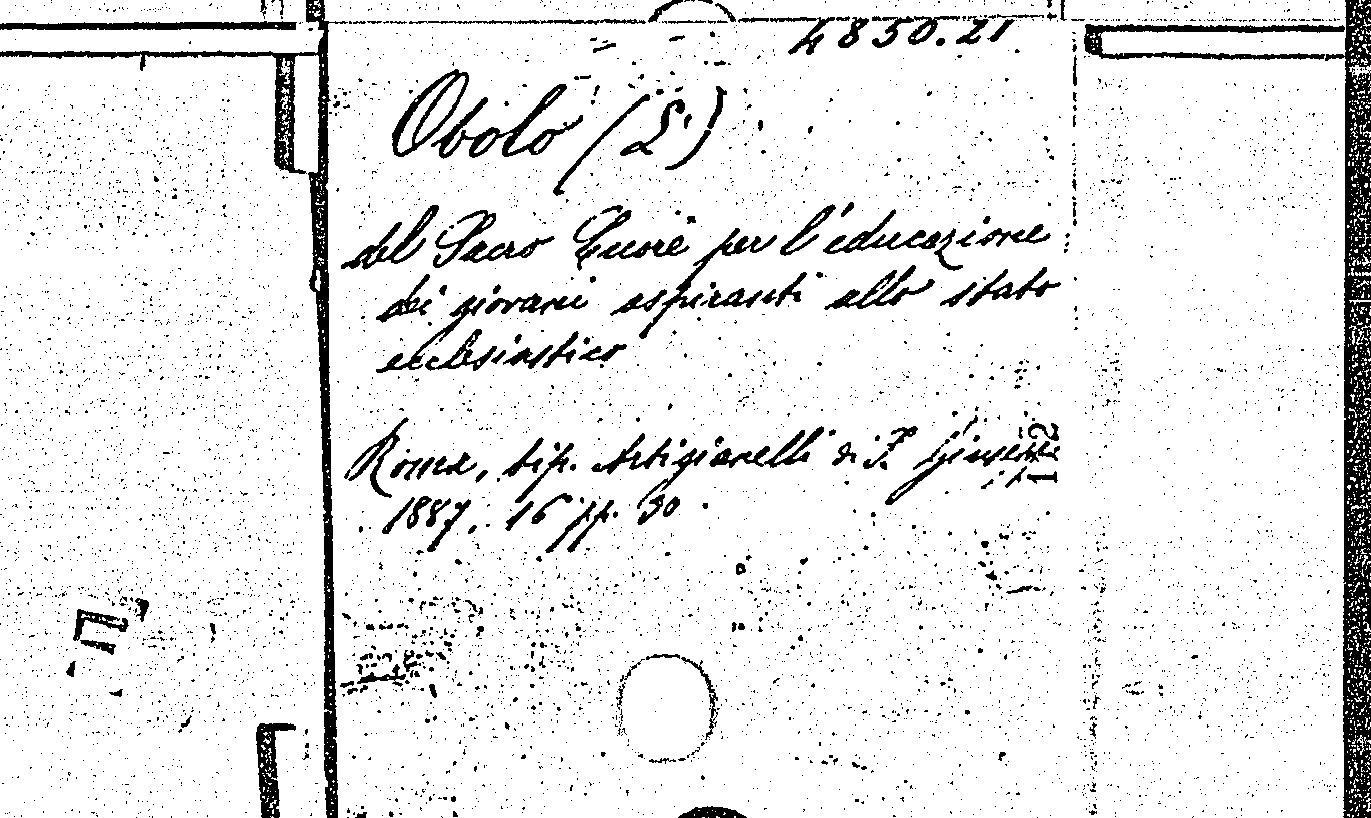 4850.21
Obolo (L')
del Sacro Cuore per l'educazione
dei giovani aspiranti allo stato
ecclesiastico
Roma, tip. Artigianelli di S. Giuseppe
1887, 16° pp. 30